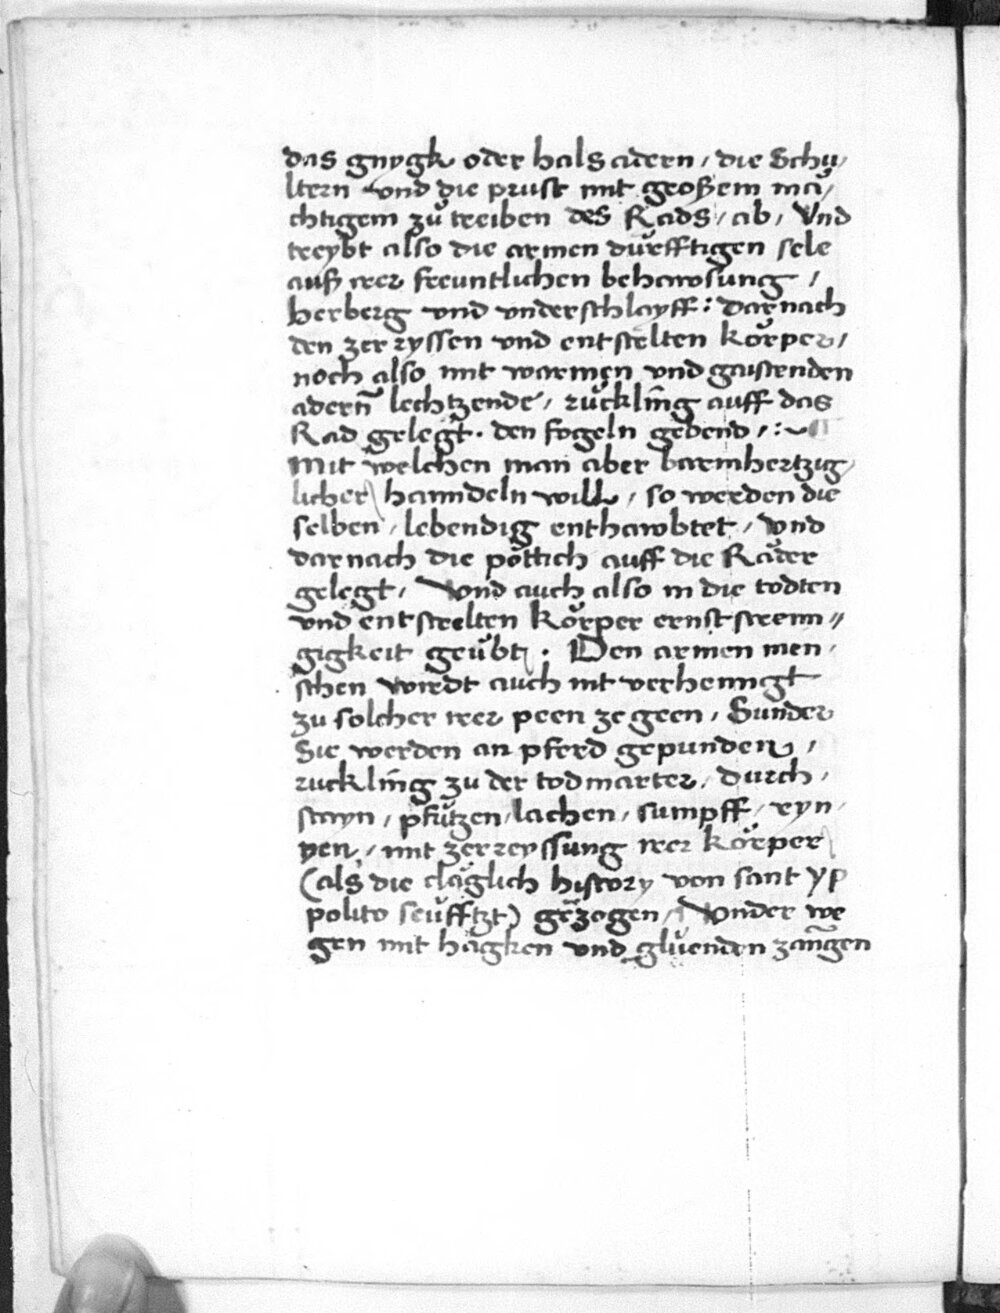 das gnygk oder halsadern / die Schu /
ltern vnd die prust mit großem mä /
chtigem zů treiben des Rads / ab / Vnd
treybt also die armen dürfftigen sele
auß irer freuntlichen behawsung /
herberg vnd vnderschlayff : Darnach
den zerryssen vnd entstelten körper /
noch also mit warmen vnd gaistenden
adern̄ lechtzende / rückling auff das
Rad gelegt . den fogeln gebend / :~
Mit welchen man aber barmhertzig /
licher / hanndeln will / so werden die
selben / lebendig enthawbtet / vnd
darnach die pöttich auff die Räder
gelegt / Vnd auch also in die todten
vnd entstelten Körper ernst strenn //
gigkeit geübt / . Den armen men /
schen wirdt auch nit verhenngt
zu solcher irer peen ze geen / Sunder
Sie werden an pferd gepunden /
ruckling zu der todmarter / durch /
stayn / pfützen / lachen / sumpff / ryn /
nen / mit zerreyssung irer körper /
(als die cläglich history von sant yp
polito seüfftzt) gezogen / Vnder we
gen mit hägken vnd glüenden zanngen